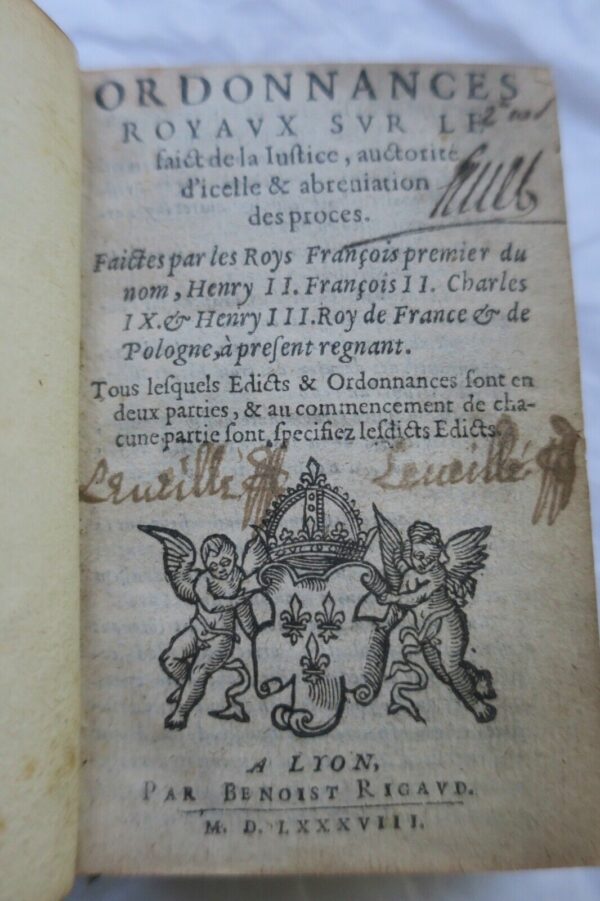 ORDONNANCES
ROYAVX SVR LE
faict de la Iustice, auctorité
d'icelle & abreuiation
des proces.
Faictes par les Roys François premier du
nom, Henry II. François II. Charles
IX. & Henry III. Roy de France & de
Pologne, à present regnant.
Tous lesquels Edicts & Ordonnances sont en
deux parties, & au commencement de cha-
cune partie sont specifiez lesdicts Edicts.
Leueillé Leueillé
A LYON,
PAR BENOIST RIGAVD.
M. D. LXXXVIII.